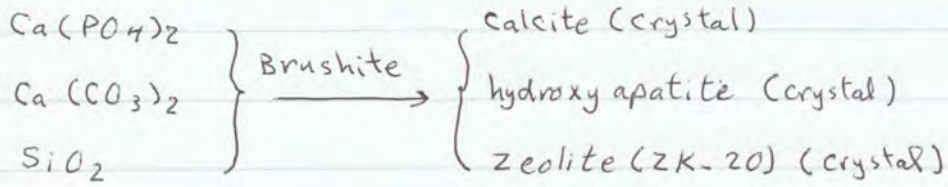 Ca(PO4)2
Ca(CO3)2
SiO2
Brushite
Calcite (Crystal)
hydroxy apatite (Crystal)
Zeolite (ZK-20) (crystal)